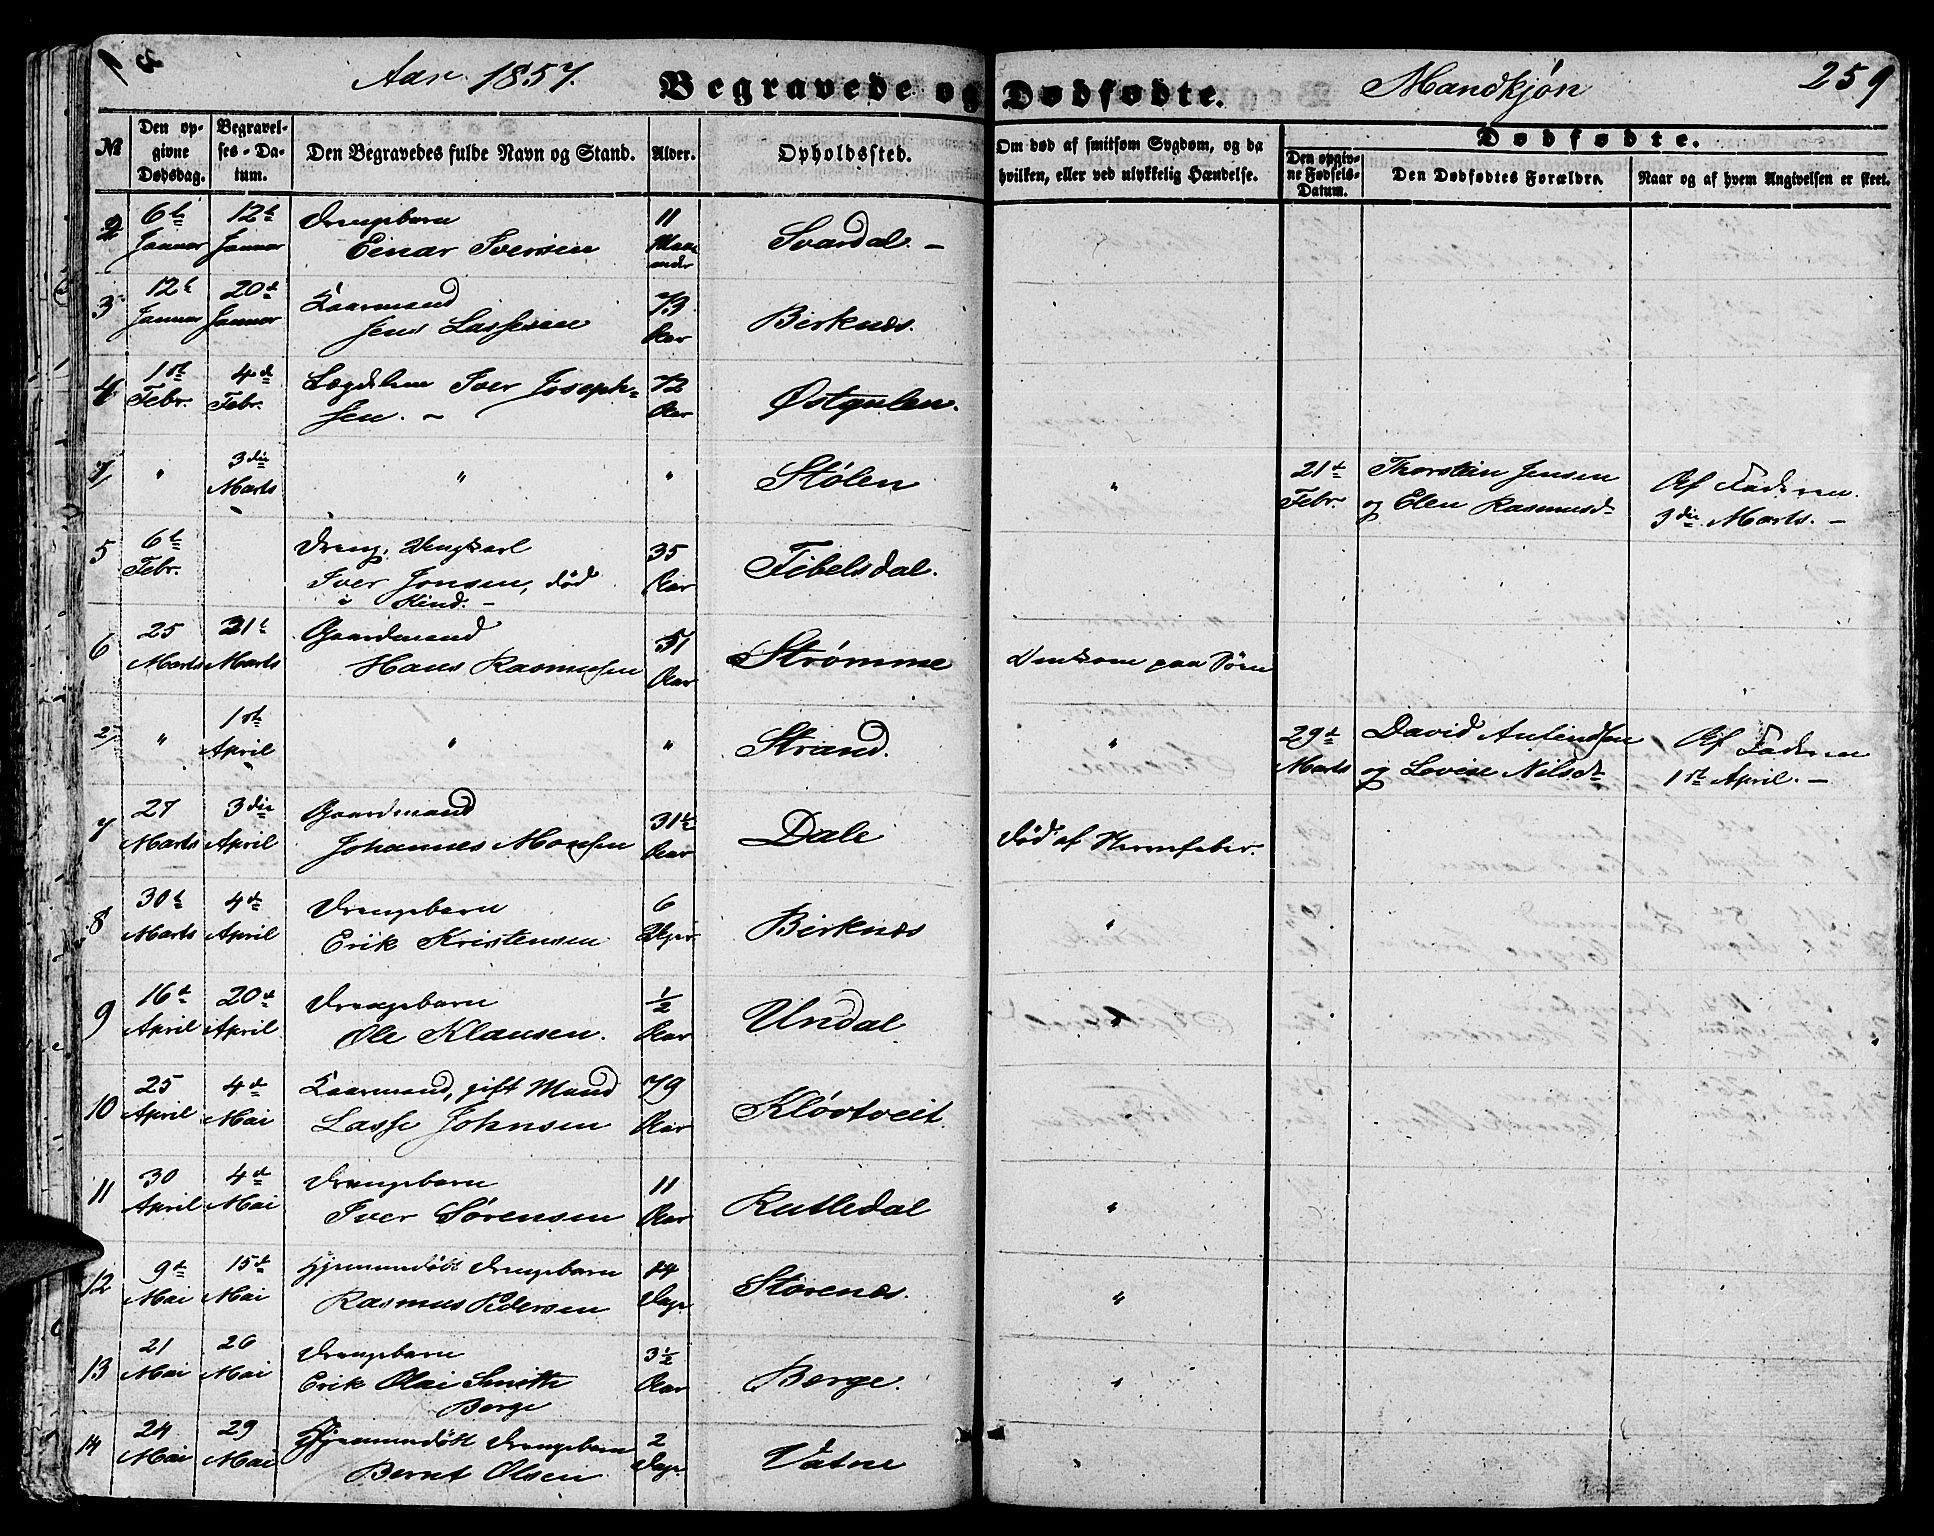 Aar 1857. Begravede og Dødfødte. Mandkjøn 259
№
Den opgivne Dødsdag.
Begravelses-Datum.
Den Begravedes fulde Navn og Stand.
Alder.
Opholdssted.
Om død af smitsom Sygdom, og da hvilken, eller ved ulykkelig Hændelse.
Dødfødte.
Den opgivne Fødsels-Datum.
Den Dødfødtes Forældre.
Naar og af hvem Angivelsen er skeet.
2 6te Januar 12te Januar Drengebarn
Einar Iversen 11 Maaneder Svardal. -
3 12te Januar 20de Januar Kaarmand
Jens Lassesen 73 Aar Birknæs.
4 1ste Febr. 4de Febr. Lægdslem Iver Joseph-
sen. - 72 Aar Østgulen.
1/ " 3die Marts " " Stølen " 21de Febr. Thorstein Jensen
og Elen Rasmusd. Af Faderen
3die Marts. -
5 6te Febr. Dreng, Ungkarl
Iver Jonsen, død
i Kind. - 35 Aar Tibelsdal.
6 25 Marts 31te Marts Gaardmand
Hans Rasmussen 51 Aar Strømme Omkom paa Søen
2/ " 1ste April " " Strand. " 29de Marts David Anfindsen
og Lovise Nilsdt. Af Faderen
1ste April. -
7 27 Marts 3die April Gaardmand
Johannes Monsen 31½ Aar Dale Død af Nervefeber.
8 30te Marts 4de April Drengebarn
Erik Kristensen 6 Uger Birknæs "
9 16de April 20de April Drengebarn
Ole Klausen. ½ Aar Undal "
10 25 April 4de Mai Kaarmand, gift Mand
Lasse Johnsen 79 Aar Kløvtveit. "
11 30 April 4de Mai Drengebarn
Iver Sørensen 11 Aar Rutledal "
12 9de Mai 15de Mai Hjemmedøbt Drengebarn
Rasmus Pedersen 14 Dage Storenæs. "
13 21 Mai 26 Mai Drengebarn
Erik Olai Smith
Borge 3½ Aar Borge. "
14 24 Mai 29 Mai Hjemmedøbt Drengebarn
Bernt Olsen 2 Dage Vatne